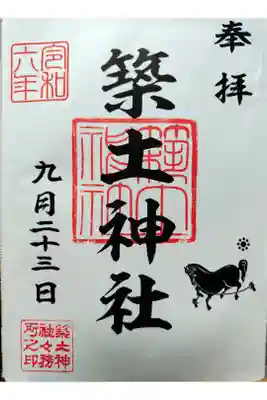 奉拝
築土神社
九月二十三日
令和
六年
築土神
社々務
所之印